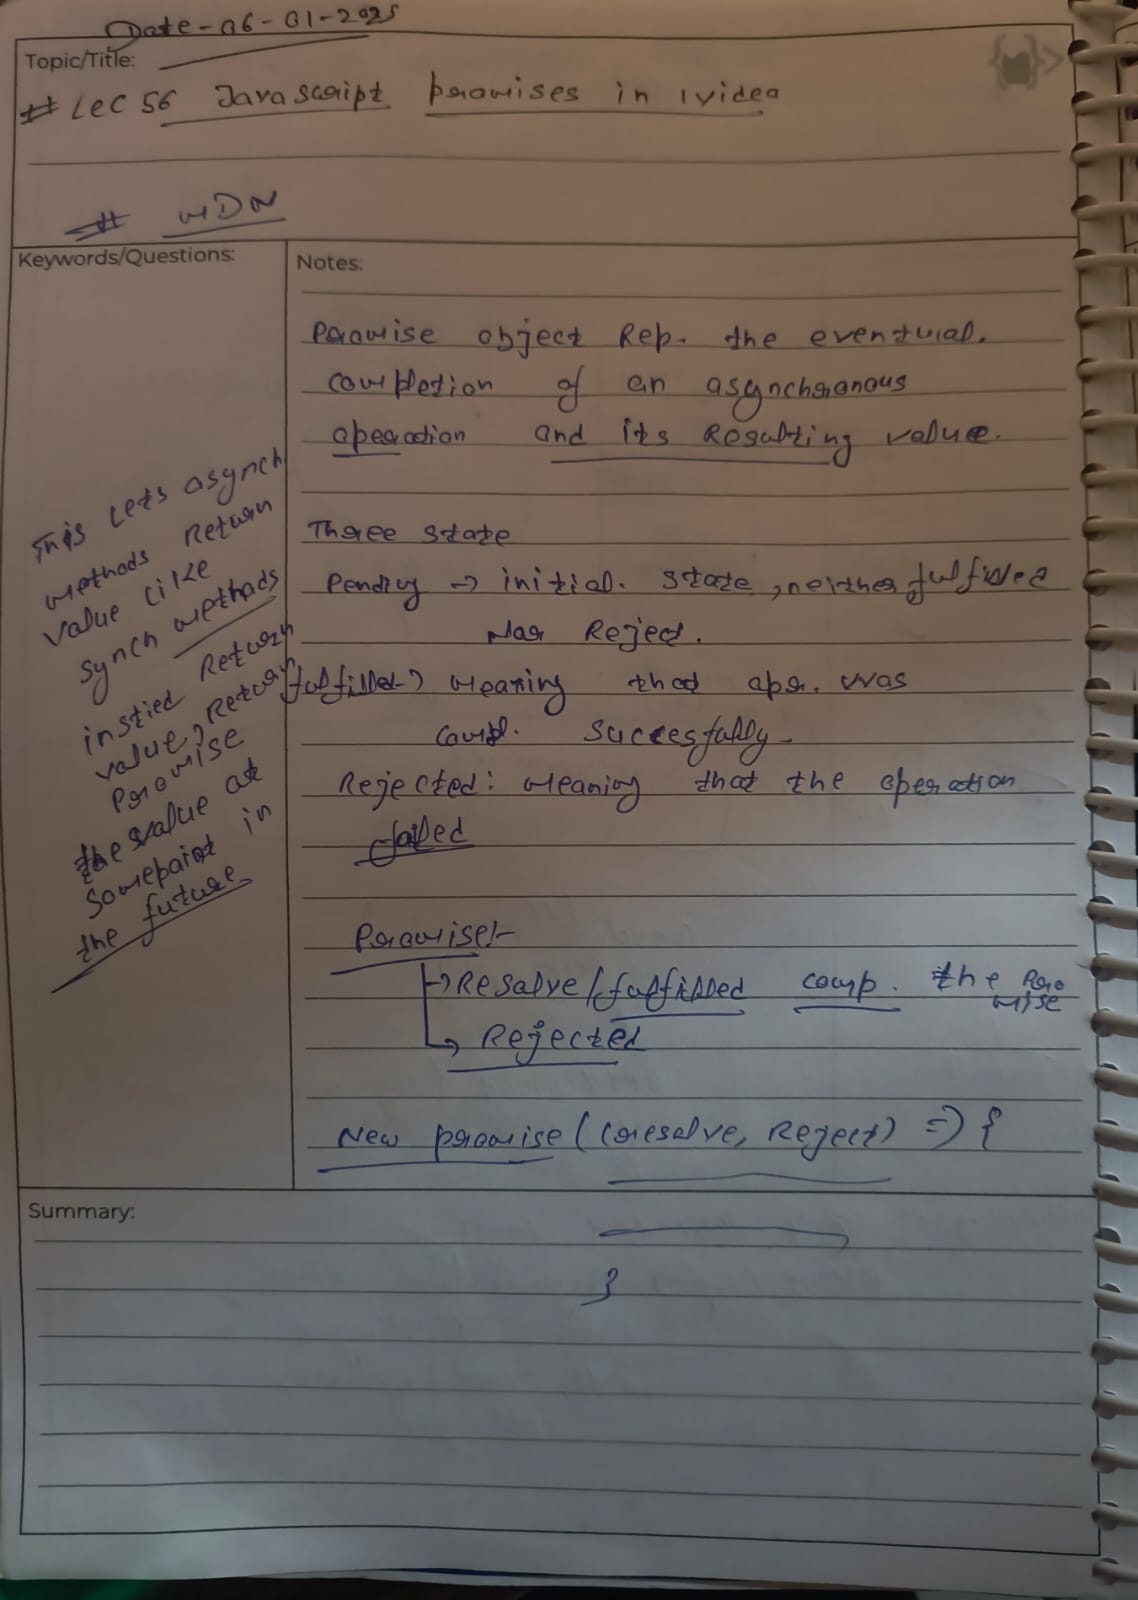 Date-06-01-2025
Topic/Title:
# Lec 56 Javascript promises in 1 video
# MDN
Keywords/Questions:
This lets asynch
methods Return
value like
synch methods
instied Return
value, Return
Promise
the value at
Somepoint in
the future
Notes:
Promise object Rep. the eventual.
completion of an asynchronous
operation and its Resulting value.
Three state
Pending → initial. state, neither fulfilled
Nor Reject.
fulfilled → Meaning that opr. was
compl. Succesfully.
Rejected: Meaning that the operation
failed
Promise:-
→ Resolve/fulfilled comp. the Promise
→ Rejected
New promise((resolve, Reject) => {
}
Summary: